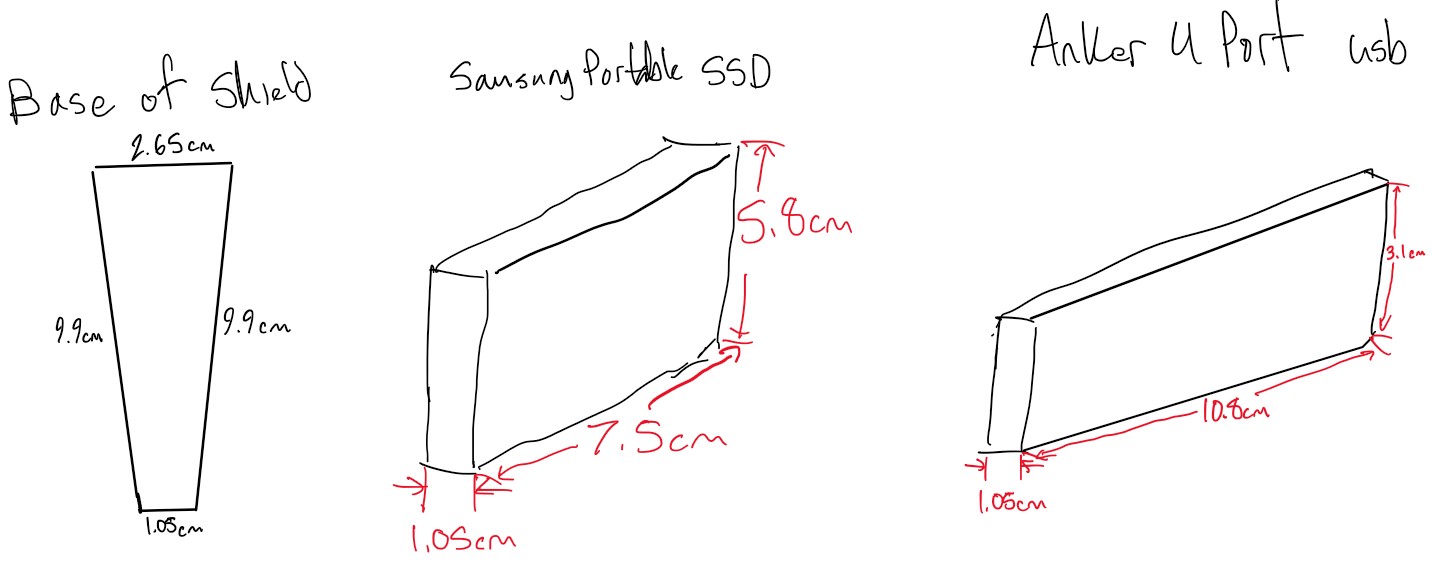 Base of Shield
2.65cm
9.9cm
9.9cm
1.05cm
Samsung Portable SSD
5.8cm
7.5cm
1.05cm
Anker 4 Port usb
3.1cm
10.8cm
1.05cm